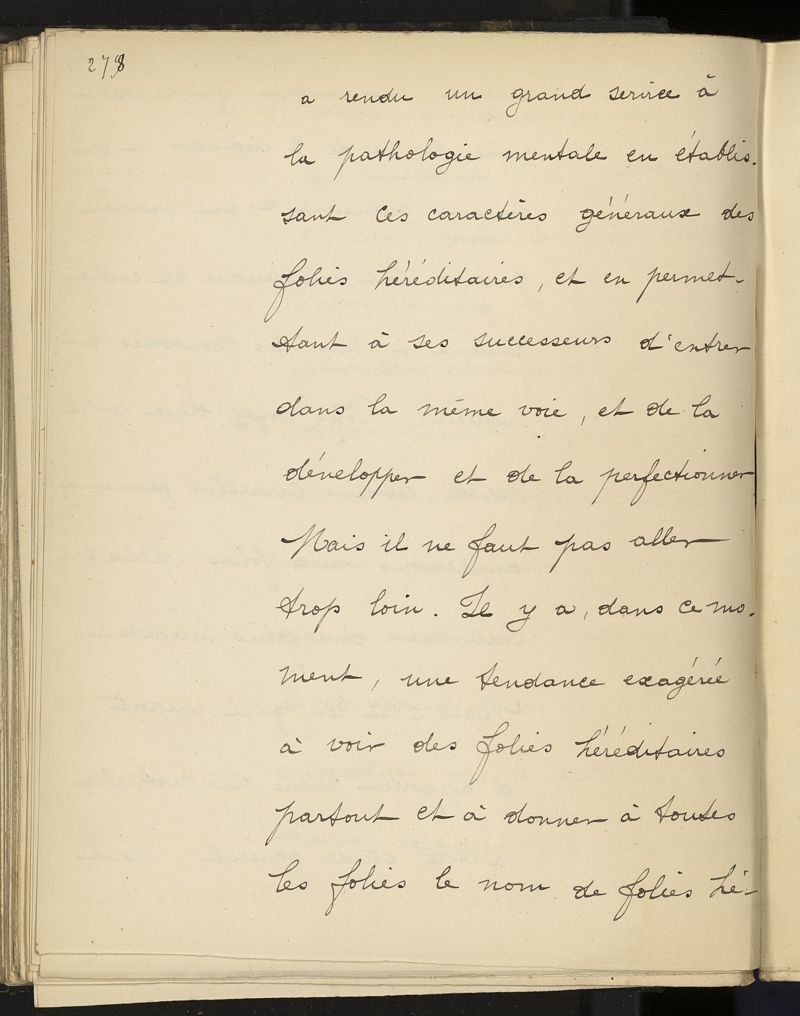 278
a rendu un grand service à
la pathologie mentale en établis-
sant ces caractères généraux des
folies héréditaires, et en permet-
tant à ses successeurs d'entrer
dans la même voie, et de la
développer et de la perfectionner
Mais il ne faut pas aller
trop loin. Il y a, dans ce mo-
ment, une tendance exagérée
à voir des folies héréditaires
partout et à donner à toutes
les folies le nom de folies hé-